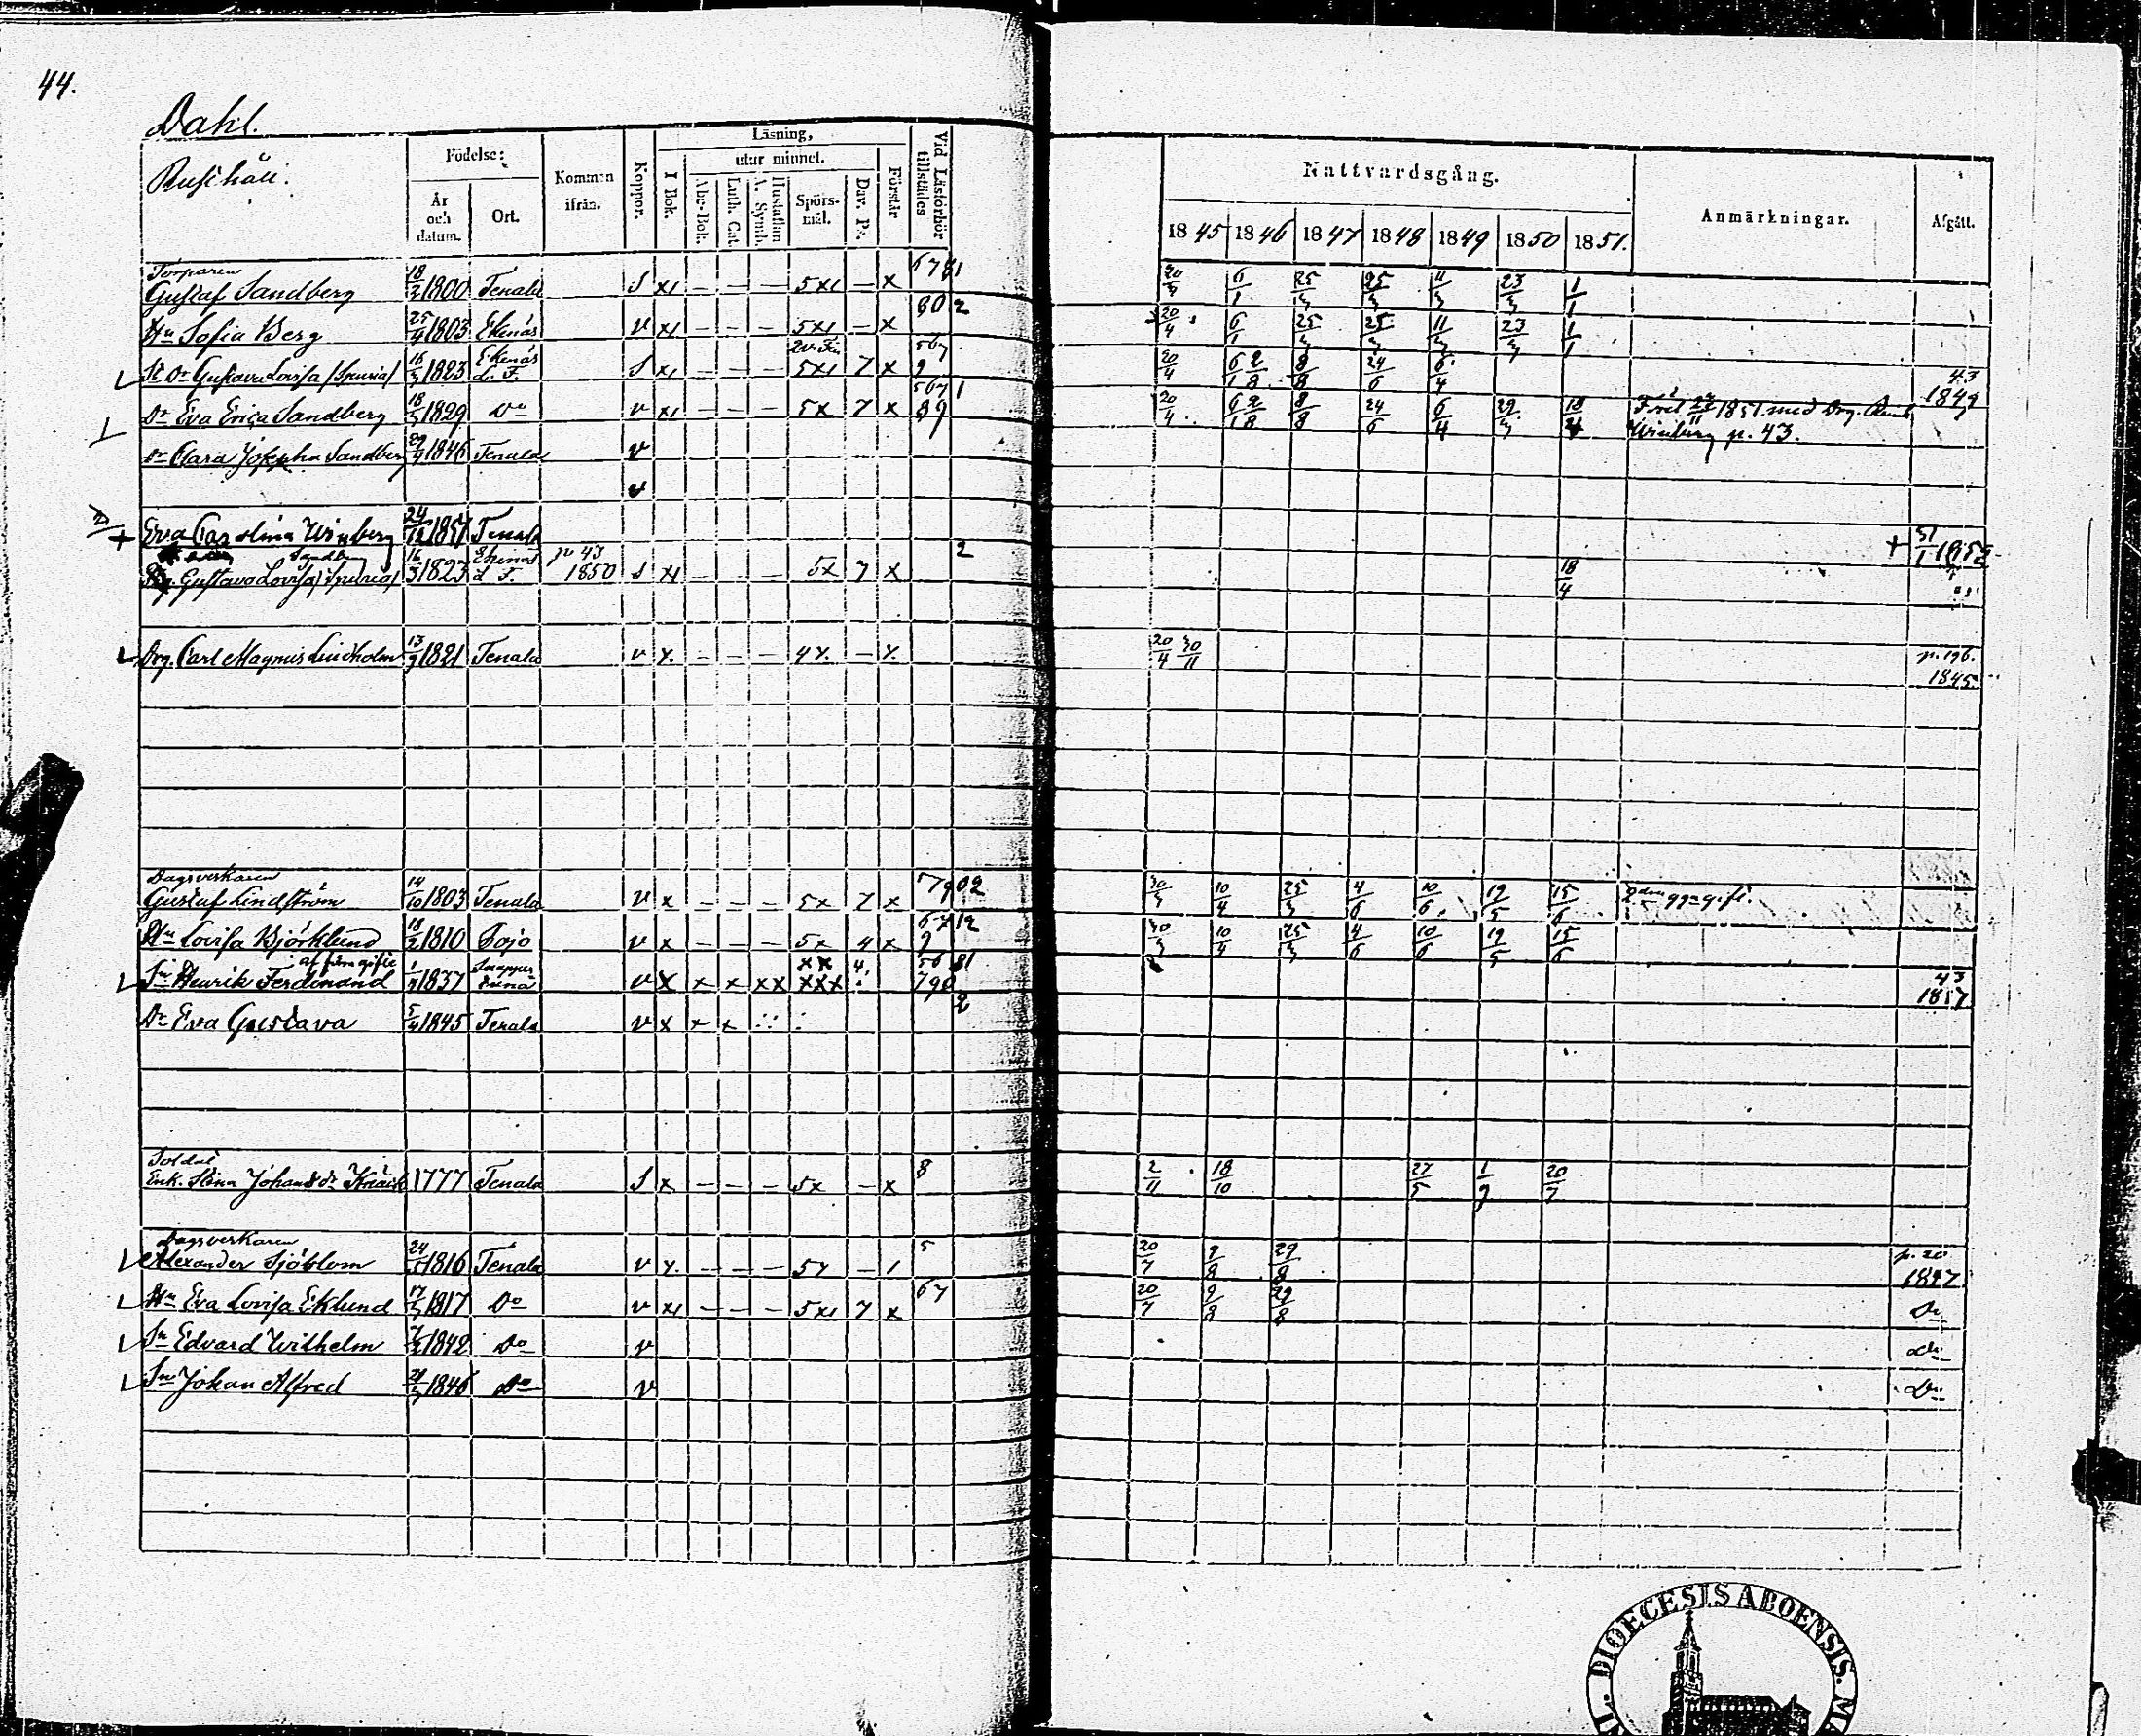 44.
Dahl.
Rusthåll.
Födelse:
År och datum.
Ort.
Kommen ifrån.
Koppor.
Läsning,
I Bok.
utur minnet.
Abc-Bok.
Luth. Cat.
Hustaflan A. Symb.
Spörsmål.
Dav. Ps.
Förstår
Vid Läsförhör tillstädes
Nattvardsgång.
1845 1846 1847 1848 1849 1850 1851.
Anmärkningar.
Afgått.
Torparen
Gustaf Sandberg 18/2 1800 Tenala S x1 – – – 5x1 – x 20/3 6/1 25/3 25/3 11/3 23/3 1/1
Hu Sofia Berg 25/4 1803 Ekenäs v x1 – – – 5x1 – x 20/4 6/1 25/3 25/3 11/3 23/3 1/1
St Dr Gustava Lovisa /Spuria/ 16/3 1823 Ekenäs L. F. S x1 – – – 5x1 7 x 20/4 6/1 2/8 8/8 24/6 6/4 43 1849
Dr Eva Erica Sandberg 18/5 1829 Do v x1 – – – 5x 7 x 20/4 6/1 2/8 8/8 24/6 6/4 29/3 18/4 1851 med Drg.
Winberg p. 43.
Dr Clara Josepha Sandberg 29/4 1846 Tenala v
v
Eva Carolina Winberg 24/12 1851 Tenala + 31/1 1852
Sandberg
Gustava Lovisa /Spuria/ 16/3 1823 Ekenäs L F. p 43 1850 S x1 – – – 5x 7 x 18/4
Drg. Carl Magnus Lindholm 13/9 1821 Tenala v x. – – – 4x. – x. 20/4 30/11 p. 196. 1845.
Dagsverkaren
Gustaf Lindström 14/10 1803 Tenala v x – – – 5x 7 x 30/3 10/4 25/3 4/6 10/6 19/5 15/6 2dra ggn gift.
Hu Lovisa Björklund 18/2 1810 Pojo v x – – – 5x 4 x 30/3 10/4 25/3 4/6 10/6 19/5 15/6
af förra gifte
Sn Henrik Ferdinand 1837 v x x x xx xxx 43
Dr Eva Gustava 5/4 1845 Tenala v x x x
Soldat
Enk. Stina Johansdr 1777 Tenala S x – – – 5x – x 8 2/11 18/10 27/5 1/9 20/7
Dagsverkaren
Alexander Sjöblom 24/5 1816 Tenala v x. – – – – 1 5 20/7 9/8 29/8 p. 20 1847
Hu Eva Lovisa Eklund 17/3 1817 Do v x1 – – – 5x1 7 x 67 20/7 9/8 29/8 Do
Sn Edvard Wilhelm 1842 Do v Do
Sn Johan Alfred 1846 Do v Do
DIOECESIS ABOENSIS.